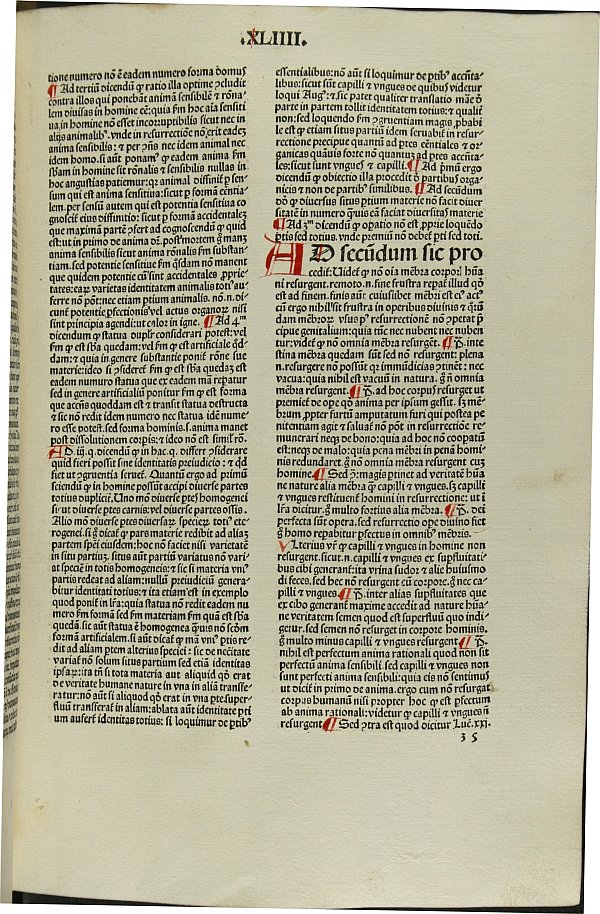 .XLIIII.
tione numero nō ē eadem numero forma domus
¶ Ad tertiū dicendū ꝙ ratio illa optime ꝯcludit
contra illos qui ponebāt animā sensibilē ⁊ rōna-
lem diuisas in homine eē: quia ẜm hoc aīa sensiti
ua in homine nō esset incorruptibilis sicut nec in
alijs animalibꝰ. vnde in resurrectiōe nō erit eadeȝ
anima sensibilis: ⁊ per ꝯn̄s nec idem animal nec
idem homo. si aūt ponamꝰ ꝙ eadem anima ẜm
sbām in homine sit rōnalis ⁊ sensibilis nullas in
hoc angustias patiemur: qꝛ animal diffinit̄ ꝑ sen-
sum qui est anima sensitiua: sicut ꝑ formā cēntia-
lem. per sensū autem qui est potentia sensitiua co
gnoscit̄ eius diffinitio: sicut ꝑ formā accidentaleȝ
que maximā partē ꝯfert ad cognoscendū ꝙ quid
est: vt in primo de anima dr̄. post mortem ḡ manȝ
anima sensibilis sicut anima rōnalis ẜm substan-
tiam. sed potentie sensitiue ẜm q̄sdam nō manent
que quidem potentie cū sint accidentales ꝓprie-
tates: eaꝝ varietas identitatem animalis totiꝰ au-
ferre nō pōt: nec etiam ptium animalis. nō.n.di-
cunt̄ potentie ꝑfectiones vel actus organoꝝ nisi
sint principia agendi: vt calor in igne. ¶ Ad 4ᵐ
dicendum ꝙ statua dupꝉr considerari potest: vel
ẜm ꝙ est sbā quedam: vel ẜm ꝙ est artificiale qd-
dam: ⁊ quia in genere substantie ponit̄ rōne sue
materie: ideo si ꝯsideret̄ ẜm ꝙ est sbā quedaȝ est
eadem numero statua que ex eadem mā repatur
sed in genere artificialiū ponitur ẜm ꝙ est forma
que accn̄s quoddam est ⁊ transit statua destructa
⁊ sic nō redit idem numero nec statua idē nume-
ro esse potest. sed forma hominis .s. anima manet
post dissolutionem corpis: ⁊ ideo nō est simil̓ rō.
AD .iij. q. dicendū ꝙ in hac q. differt ꝯsiderare
quid fieri possit sine identitatis p̄eiudicio: ⁊ qd
fiet vt ꝯgruentia seruet̄. Quantū ergo ad primū
sciendū ꝙ in homine possūt accipi diuerse partes
totius dupliciter. Uno mō diuerse ptes homogenei
sicut diuerse ptes carnis: vel diuerse partes ossis.
Alio mō diuerse ptes diuersaꝝ specieꝝ totiꝰ ete-
rogenei. si ḡ dicat̄ ꝙ pars materie redibit ad aliaȝ
partem sp̄ei eiusdem: hoc nō faciet nisi varietatē
in situ partiuȝ. situs aūt partiū variatus nō vari-
at speciē in totis homogeneis: ⁊ sic si materia vniꝰ
partis redeat ad aliam: nullū p̄eiudiciū genera-
bitur identitati totius: ⁊ ita etiam est in exemplo
quod ponit̄ in lr̄a: quia statua nō redit eadem nu
mero ẜm formā sed ẜm materiam ẜm quā est sbā
quedā. sic aūt statua ē homogenea q̄uis nō ẜcdm
formā artificialem. si aūt dicat̄ ꝙ mā vniꝰ ptis re-
dit ad aliam ptem alterius speciei: sic de necītate
variat̄ nō solum situs partium sed etiā identitas
ipsaꝝ: ita tn̄ si tota materia aut aliquid qd̓ erat
de veritate humane nature in vna in aliā transfe-
ratur: nō aūt si aliquod qd̓ erat in vna pte super-
fluū transferat̄ in aliam: ablata aūt identitate pti
um aufert̄ identitas totius: si loquimur de ptibꝰ
essentialibus: nō aūt si loquimur de ptibꝰ accn̄ta-
libus: sicut sūt capilli ⁊ vngues de quibus videtur
loqui Augꝰ: ⁊ sic patet qualiter translatio māe d̓
parte in partem tollit identitatem totius: ⁊ qualit̄
non: sed loquendo ẜm ꝯgruentiam magis ꝓbabi
le est ꝙ etiam situs partiū idem seruabit̄ in resur-
rectione precipue quantū ad ptes eēntiales ⁊ or-
ganicas q̄uis forte nō quantuȝ ad ptes accn̄ta-
les: sicut sunt vngues ⁊ capilli. ¶ Ad pmū ergo
dicendū ꝙ obiectio illa procedit d̓ partibus orga-
nicis ⁊ non de partibꝰ similibus. ¶ Ad secūdum
dōꝫ ꝙ diuersus situs ptium materie nō facit diuer
sitatē in numero q̄uis eā faciat diuersitas materie
¶ Ad 3ᵐ dicendū ꝙ opatio nō est ꝓprie loquēdo
ptis sed totius. vnde premiū nō debet̄ pti sed toti.
AD secūdum sic pro
cedit̄: Uidet̄ ꝙ nō oīa mēbra corpoꝝ hūa
ni resurgent. remoto .n. fine frustra repat̄ illud qd̓
est ad finem. finis aūt cuiuslibet mēbri est eiꝰ actꝰ
cū ergo nihil fit frustra in operibus diuinis ⁊ q̄rū
dam mēbroꝝ vsus ꝑꝰ resurrectionē nō ꝯpetat p̄
cipue genitalium: quia tūc nec nubent nec nuben
tur: videt̄ ꝙ nō omnia mēbra resurgēt. ¶ P. inte
stina mēbra quedam sūt sed nō resurgent: plena
.n. resurgere nō possūt qꝛ immūdicias ꝯtinēt: nec
vacua: quia nihil est vacuū in natura. ḡ nō omnia
mēbra resurgent. ¶ P. ad hoc corpus resurget vt
premiet̄ de ope qd̓ anima per ipsum gessit. sȝ mē-
brum ꝓpter furtū amputatum furi qui postea pe
nitentiam agit ⁊ saluat̄ nō pōt in resurrectiōe re-
munerari neqȝ de bono: quia ad hoc nō cooperatū
est: neqȝ de malo: quia pena mēbri in penā homi-
nis redundaret. ḡ nō omnia mēbra resurgent cuȝ
homine. ¶ Sed ꝯ: magis ptinet ad veritatē hūa
ne nature alia mēbra ꝙ capilli ⁊ vngues. sȝ capilli
⁊ vngues restituent̄ homini in resurrectione: vt i
lr̄a dicitur. ḡ multo fortius alia mēbra. ¶ P. dei
perfecta sūt opera. sed resurrectio ope diuino fiet
ḡ homo repabitur pfectus in omnibꝰ mēbris.
ULterius vr̄ ꝙ capilli ⁊ vngues in homine non
resurgent. sicut .n. capilli ⁊ vngues ex supfluitati-
bus cibi generant̄: ita vrina sudor ⁊ alie huiusmo
di feces. sed hec nō resurgent cū corpore. ḡ nec ca
pilli ⁊ vngues. ¶ P. inter alias supfluitates que
ex cibo generant̄ maxime accedit ad nature hūa-
ne veritatem semen quod est superfluū quo indi-
getur. sed semen nō resurget in corpore hominis.
ḡ multo minus capilli ⁊ vngues resurgent. ¶ P.
nihil est perfectum anima rationali quod non sit
perfectū anima sensibili. sed capilli ⁊ vngues non
sunt perfecti anima sensibili: quia eis nō sentimus
vt dicit̄ in primo de anima. ergo cum nō resurgat
corpus humanū nisi propter hoc ꝙ est pfectum
ab anima rationali: videtur ꝙ capilli ⁊ vngues n̄
resurgent. ¶ Sed ꝯtra est quod dicitur Luc̄. xxi.
35